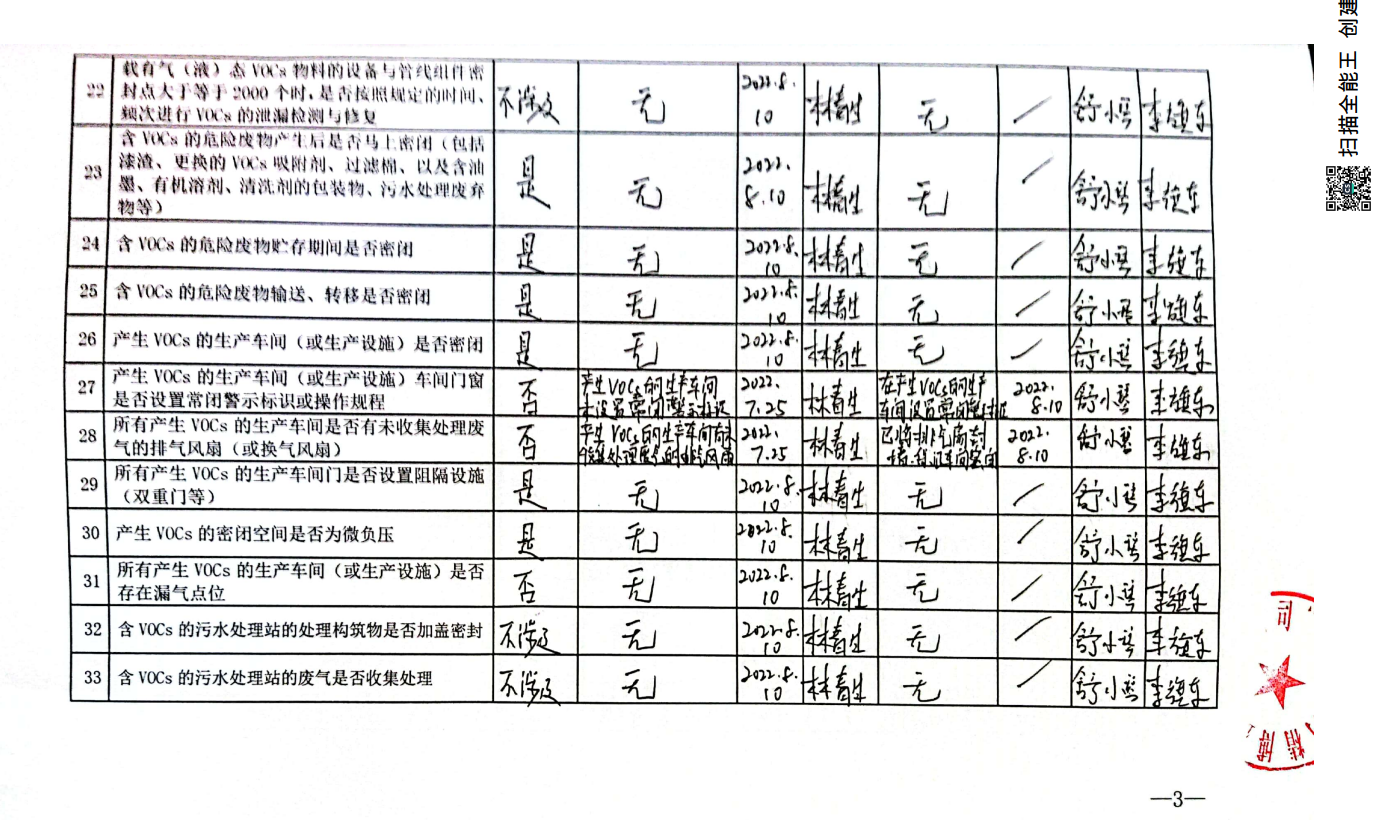 22 载有气（液）态 VOCs 物料的设备与管线组件密
封点大于等于 2000 个时，是否按照规定的时间、
频次进行 VOCs 的泄漏检测与修复
不涉及 无 2022.8.10 林春生 无 / 舒小 李雄东
23 含 VOCs 的危险废物产生后是否马上密闭（包括
漆渣、更换的 VOCs 吸附剂、过滤棉、以及含油
墨、有机溶剂、清洗剂的包装物、污水处理废弃
物等）
是 无 2022.8.10 林春生 无 / 舒小 李雄东
24 含 VOCs 的危险废物贮存期间是否密闭 是 无 2022.8.10 林春生 无 / 舒小 李雄东
25 含 VOCs 的危险废物输送、转移是否密闭 是 无 2022.8.10 林春生 无 / 舒小 李雄东
26 产生 VOCs 的生产车间（或生产设施）是否密闭 是 无 2022.8.10 林春生 无 / 舒小 李雄东
27 产生 VOCs 的生产车间（或生产设施）车间门窗
是否设置常闭警示标识或操作规程
否 产生VOCs的生产车间
未设置常闭警示标识
2022.7.25 林春生 在产生VOCs的生产
车间设置常闭
2022.8.10 舒小 李雄东
28 所有产生 VOCs 的生产车间是否有未收集处理废
气的排气风扇（或换气风扇）
否 产生VOCs的生产车间有未
收集处理废气的排气风扇
2022.7.25 林春生 已将排气扇封
堵,保证车间密闭
2022.8.10 舒小 李雄东
29 所有产生 VOCs 的生产车间门是否设置阻隔设施
（双重门等）
是 无 2022.8.10 林春生 无 / 舒小 李雄东
30 产生 VOCs 的密闭空间是否为微负压 是 无 2022.8.10 林春生 无 / 舒小 李雄东
31 所有产生 VOCs 的生产车间（或生产设施）是否
存在漏气点位
否 无 2022.8.10 林春生 无 / 舒小 李雄东
32 含 VOCs 的污水处理站的处理构筑物是否加盖密封 不涉及 无 2022.8.10 林春生 无 / 舒小 李雄东
33 含 VOCs 的污水处理站的废气是否收集处理 不涉及 无 2022.8.10 林春生 无 / 舒小 李雄东
—3—
扫描全能王 创建
司
精博